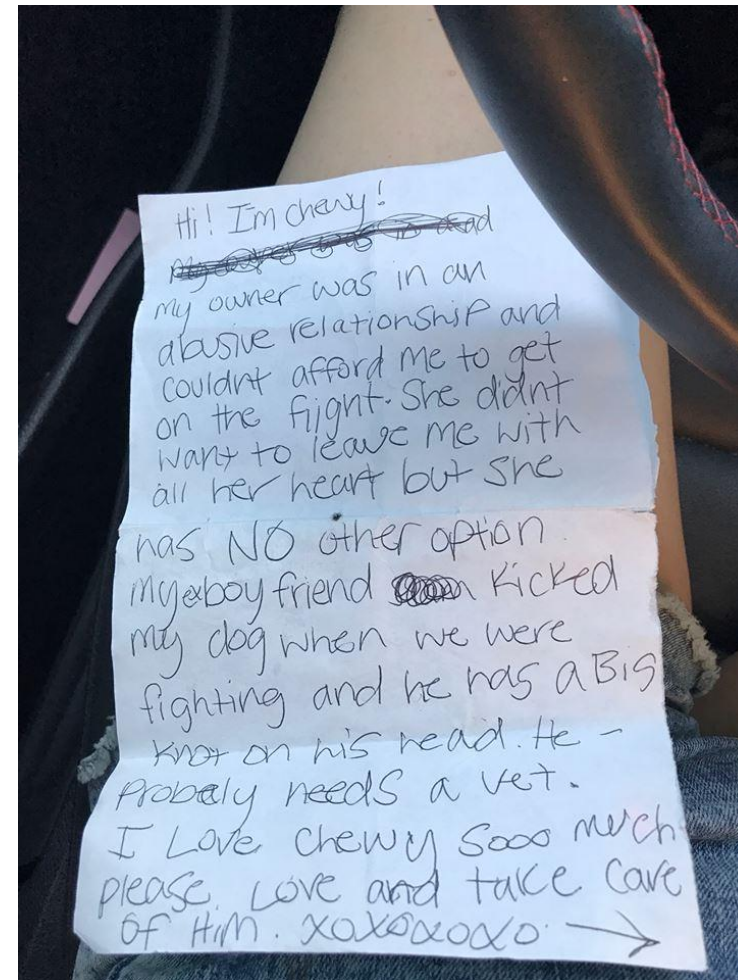 Hi! I'm chewy!
my owner was in an
abusive relationship and
couldnt afford me to get
on the flight. She didnt
want to leave me with
all her heart but she
has NO other option.
My ex boyfriend kicked
my dog when we were
fighting and he has a Big
knot on his head. He -
probaly needs a vet.
I Love Chewy Sooo much
please love and take care
of Him. xoxoxoxo →